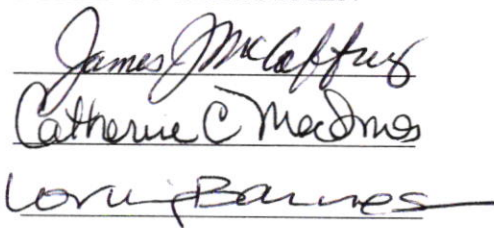 James J McCaffrey
Catherine C MacInnes
Barnes